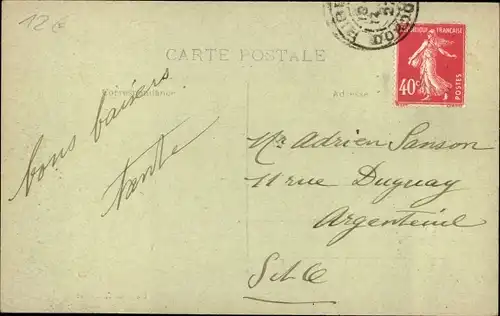 12€
CARTE POSTALE
Correspondance
Adresse
RÉPUBLIQUE FRANÇAISE
40c
POSTES
bons baisers
Tante
Mr Adrien Sanson
11 rue Duguay
Argenteuil
S et O